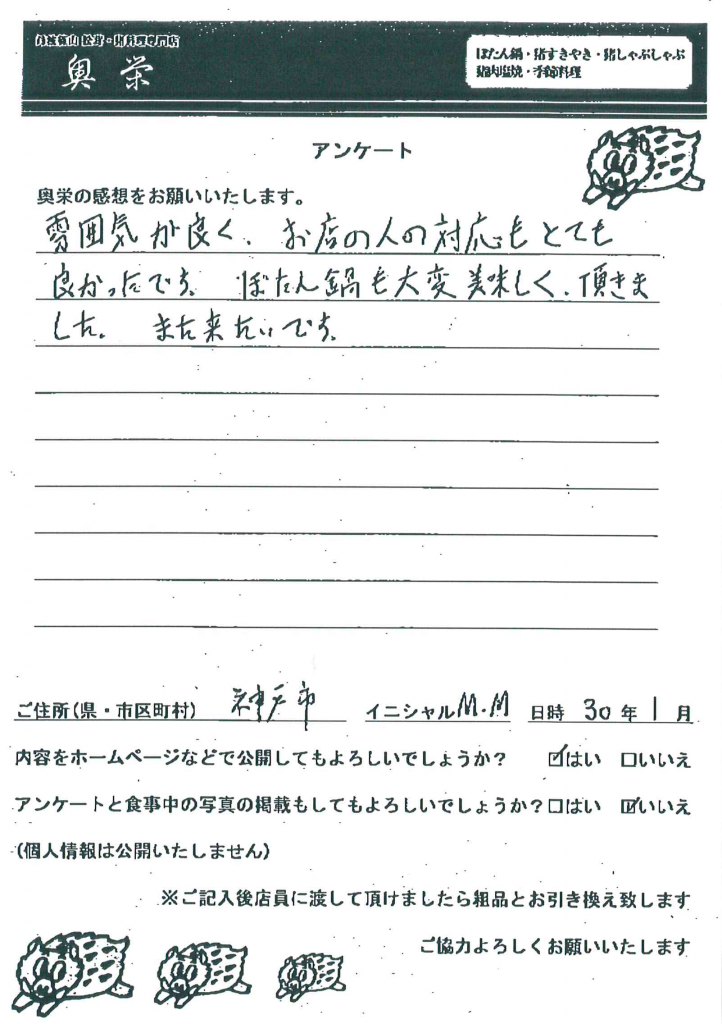 丹波篠山 松茸・猪料理専門店
奥栄
ぼたん鍋・猪すきやき・猪しゃぶしゃぶ
猪肉塩焼・季節料理
アンケート
奥栄の感想をお願いいたします。
雰囲気が良く、お店の人の対応もとても
良かったです。ぼたん鍋も大変美味しく、頂きま
した。また来たいです。
ご住所(県・市区町村) 神戸市 イニシャル M.M 日時 30年1月
内容をホームページなどで公開してもよろしいでしょうか? ☑はい □いいえ
アンケートと食事中の写真の掲載もしてもよろしいでしょうか?□はい ☑いいえ
(個人情報は公開いたしません)
※ご記入後店員に渡して頂けましたら粗品とお引き換え致します
ご協力よろしくお願いいたします